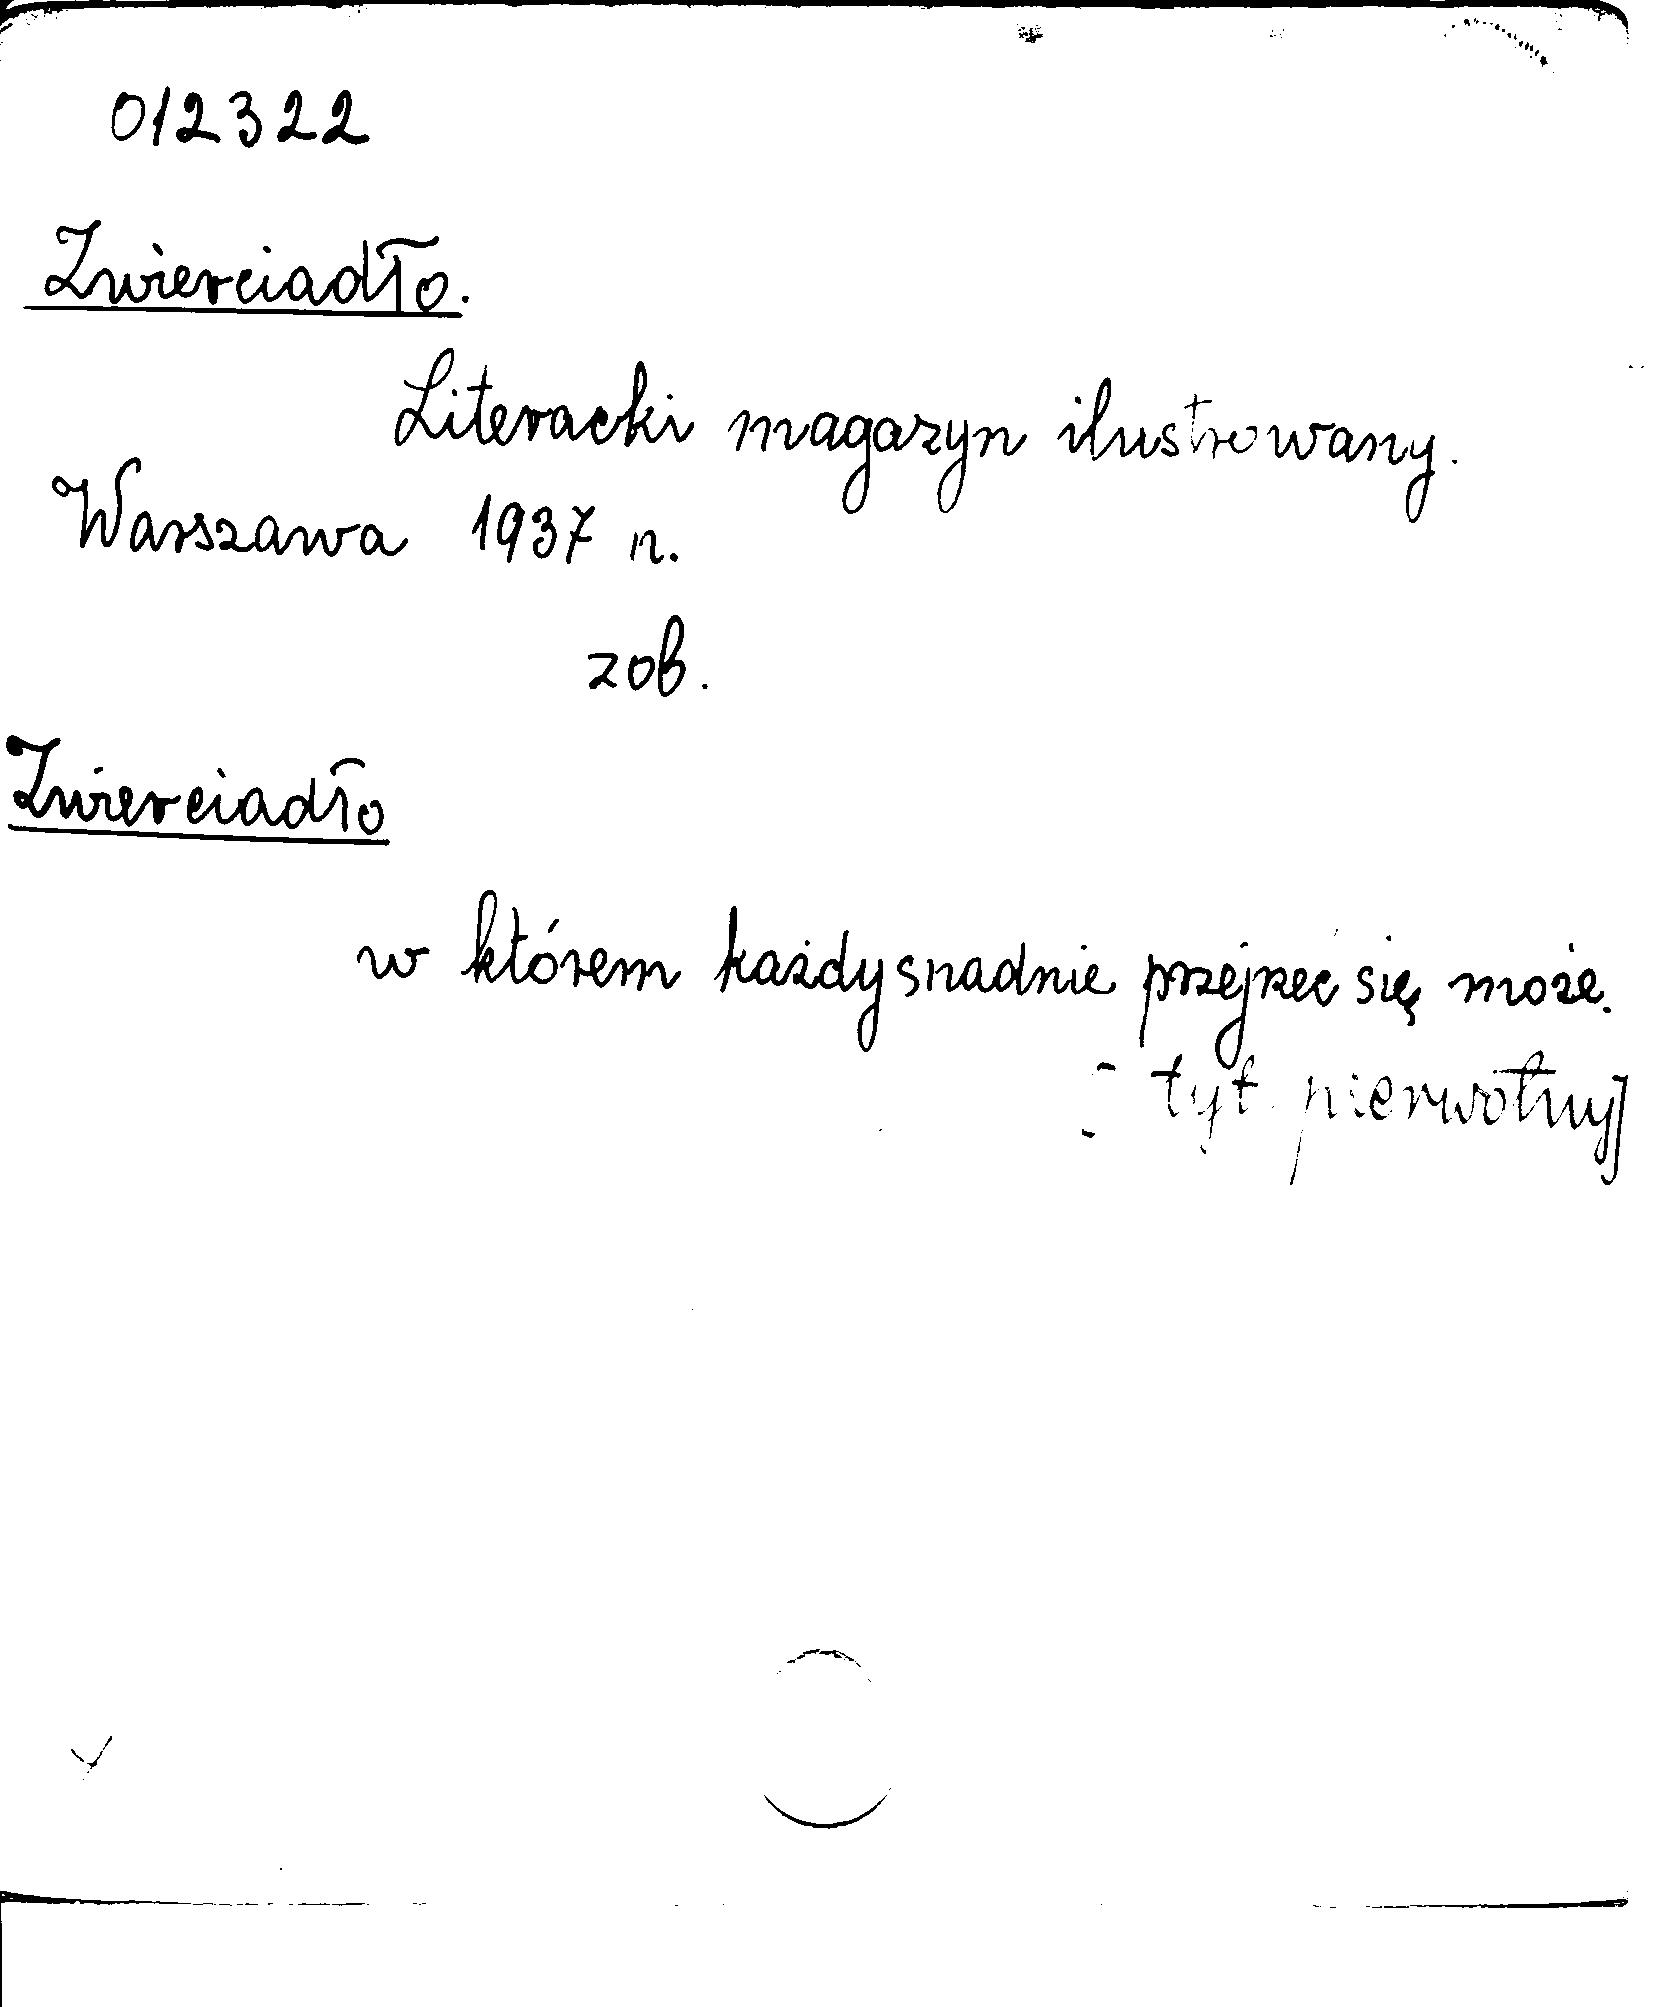 012322
Zwierciadło.
Literacki magazyn ilustrowany.
Warszawa 1937 r.
zob.
Zwierciadło
w którem każdy snadnie przejrzeć się może.
[tyt. pierwotny]